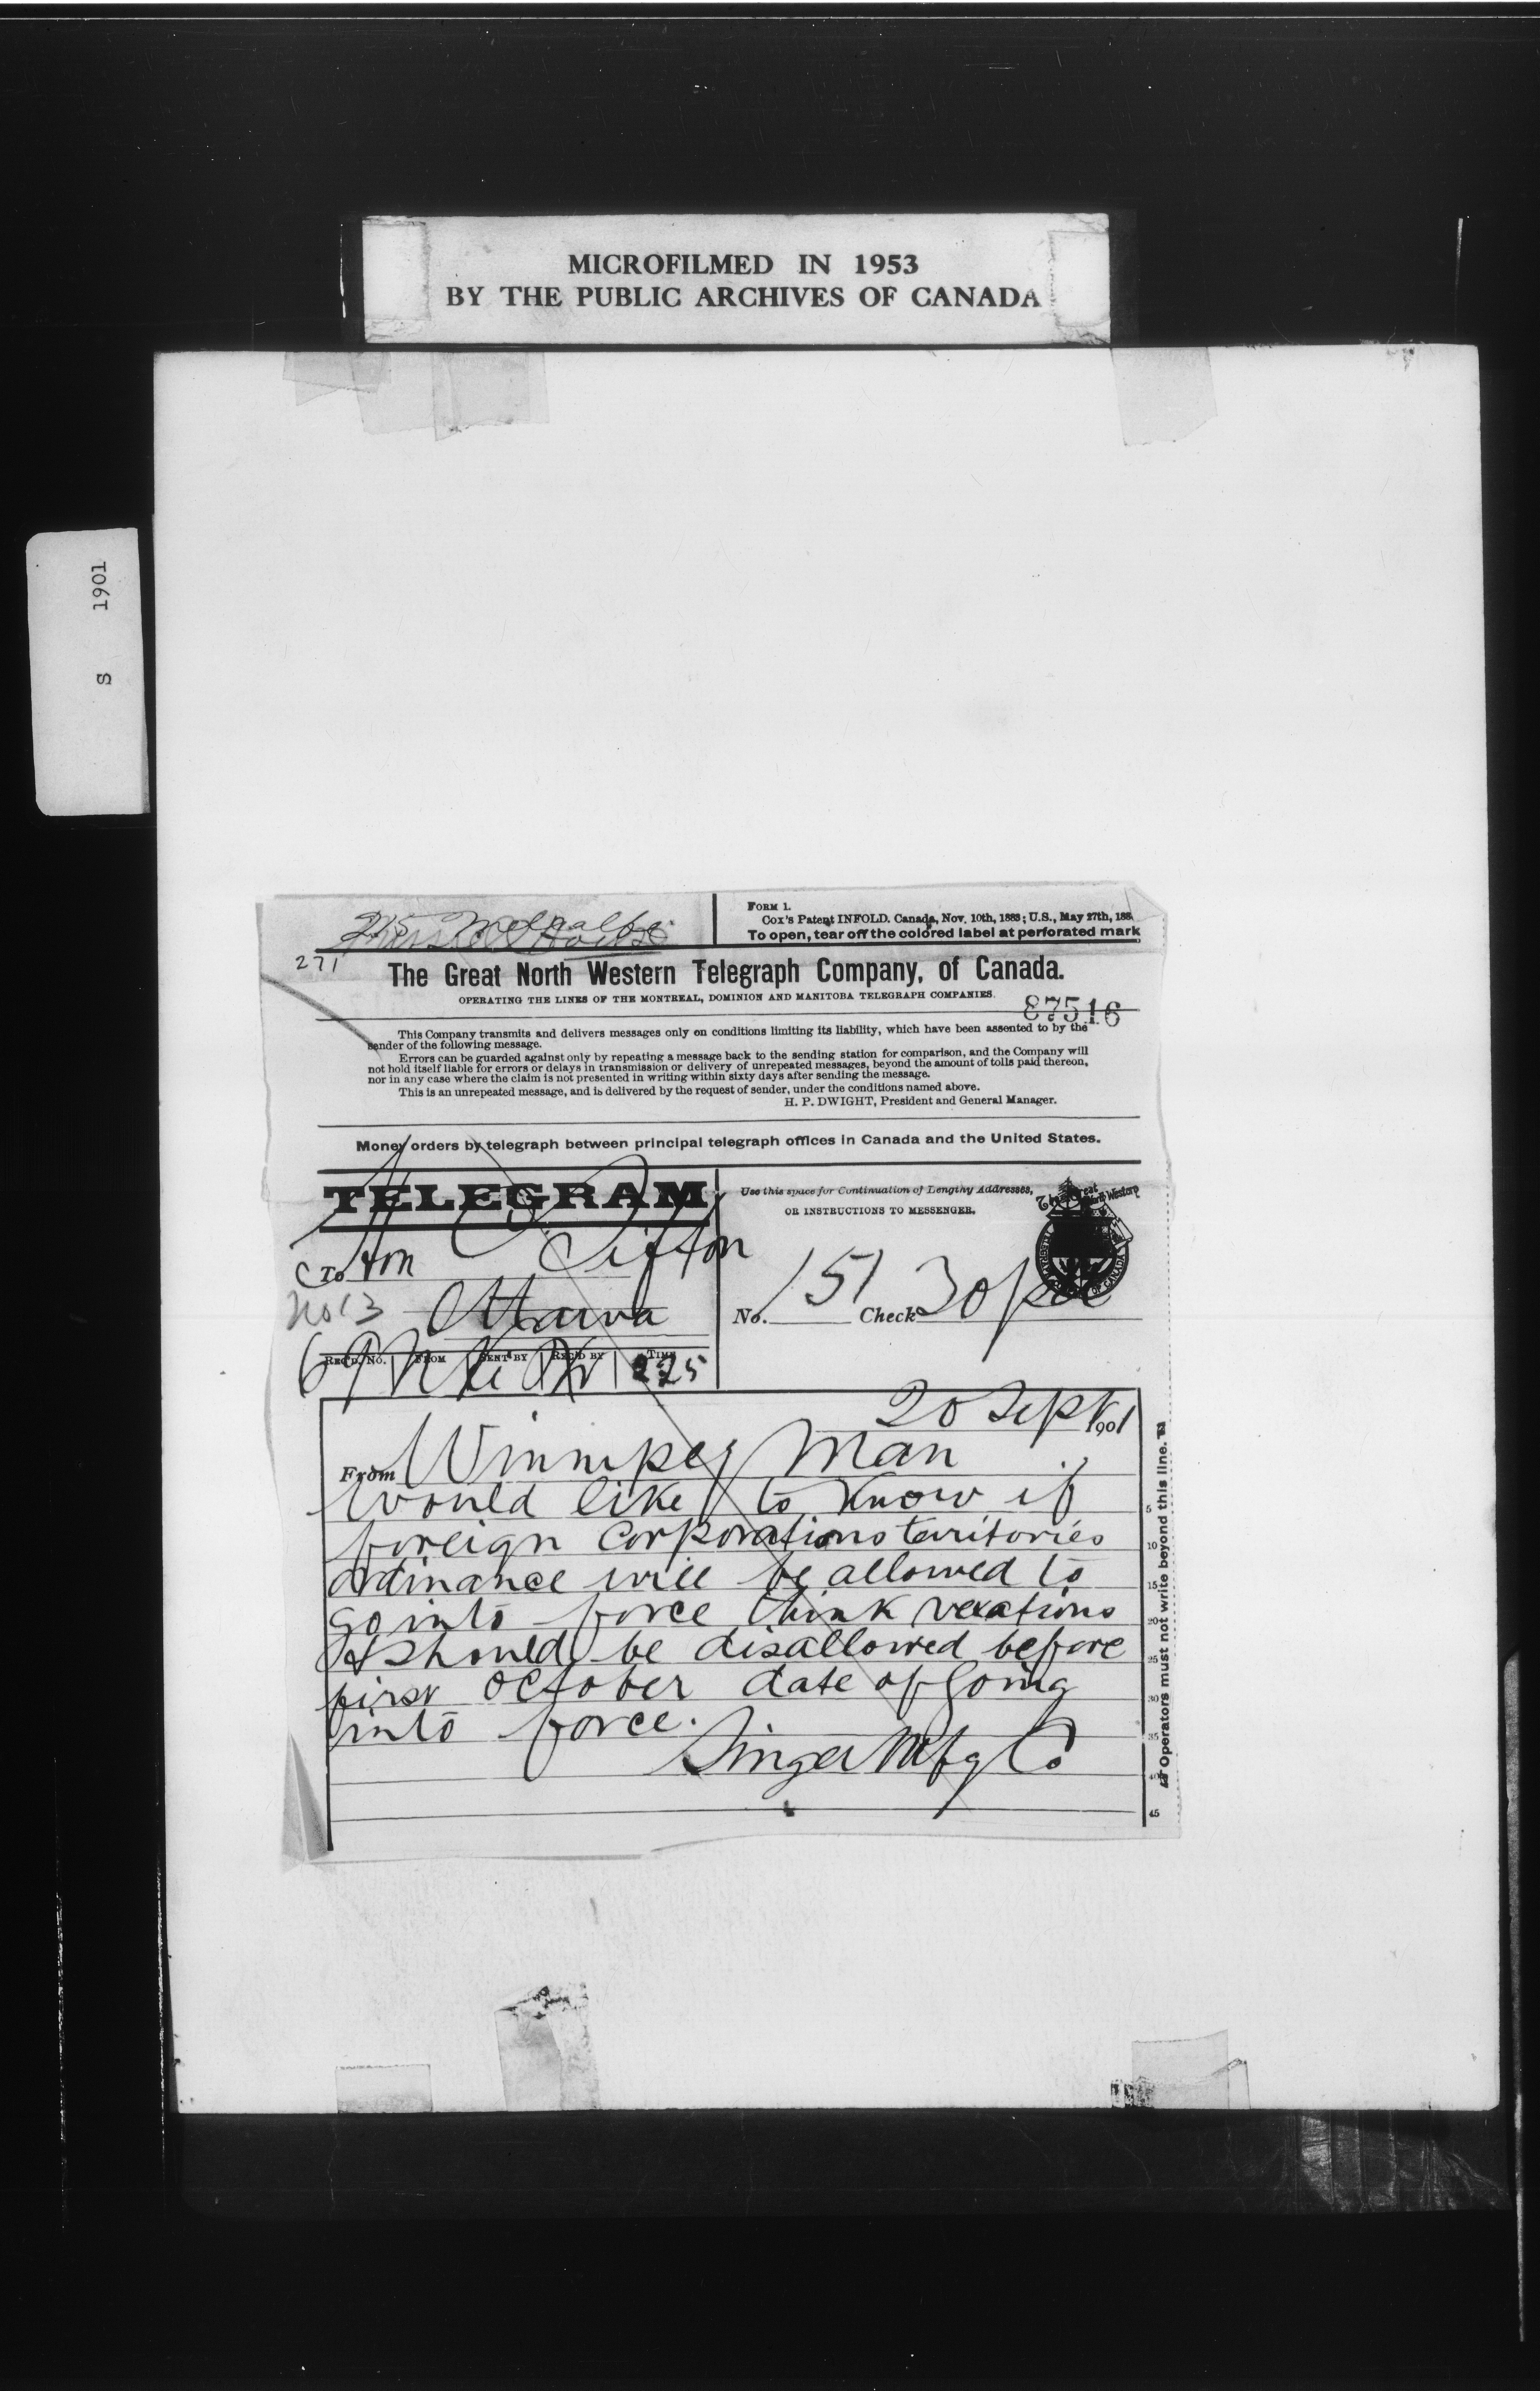 MICROFILMED IN 1953
BY THE PUBLIC ARCHIVES OF CANADA
S 1901
245 Metcalfe
FORM 1.
Cox's Patent INFOLD. Canada, Nov. 10th, 1883; U.S., May 27th, 188
To open, tear off the colored label at perforated mark
271
The Great North Western Telegraph Company, of Canada.
OPERATING THE LINES OF THE MONTREAL, DOMINION AND MANITOBA TELEGRAPH COMPANIES.
87516
This Company transmits and delivers messages only on conditions limiting its liability, which have been assented to by the
sender of the following message.
Errors can be guarded against only by repeating a message back to the sending station for comparison, and the Company will
not hold itself liable for errors or delays in transmission or delivery of unrepeated messages, beyond the amount of tolls paid thereon,
nor in any case where the claim is not presented in writing within sixty days after sending the message.
This is an unrepeated message, and is delivered by the request of sender, under the conditions named above.
H. P. DWIGHT, President and General Manager.
Money orders by telegraph between principal telegraph offices in Canada and the United States.
TELEGRAM
Use this space for Continuation of Lengthy Addresses,
OR INSTRUCTIONS TO MESSENGER.
The Great North Western
To Hon C Sifton
Ottawa
No. 151 Check 30
REC'D. No. FROM SENT BY REC'D BY TIME
225
20 Sept 1901
From Winnipeg Man
Would like to know if
foreign corporations territories
ordinance will be allowed to
go into force think vexatious
& should be disallowed before
first October date of going
into force.
Singer Mfg Co
5
10
15
20
25
30
35
40
45
Operators must not write beyond this line.